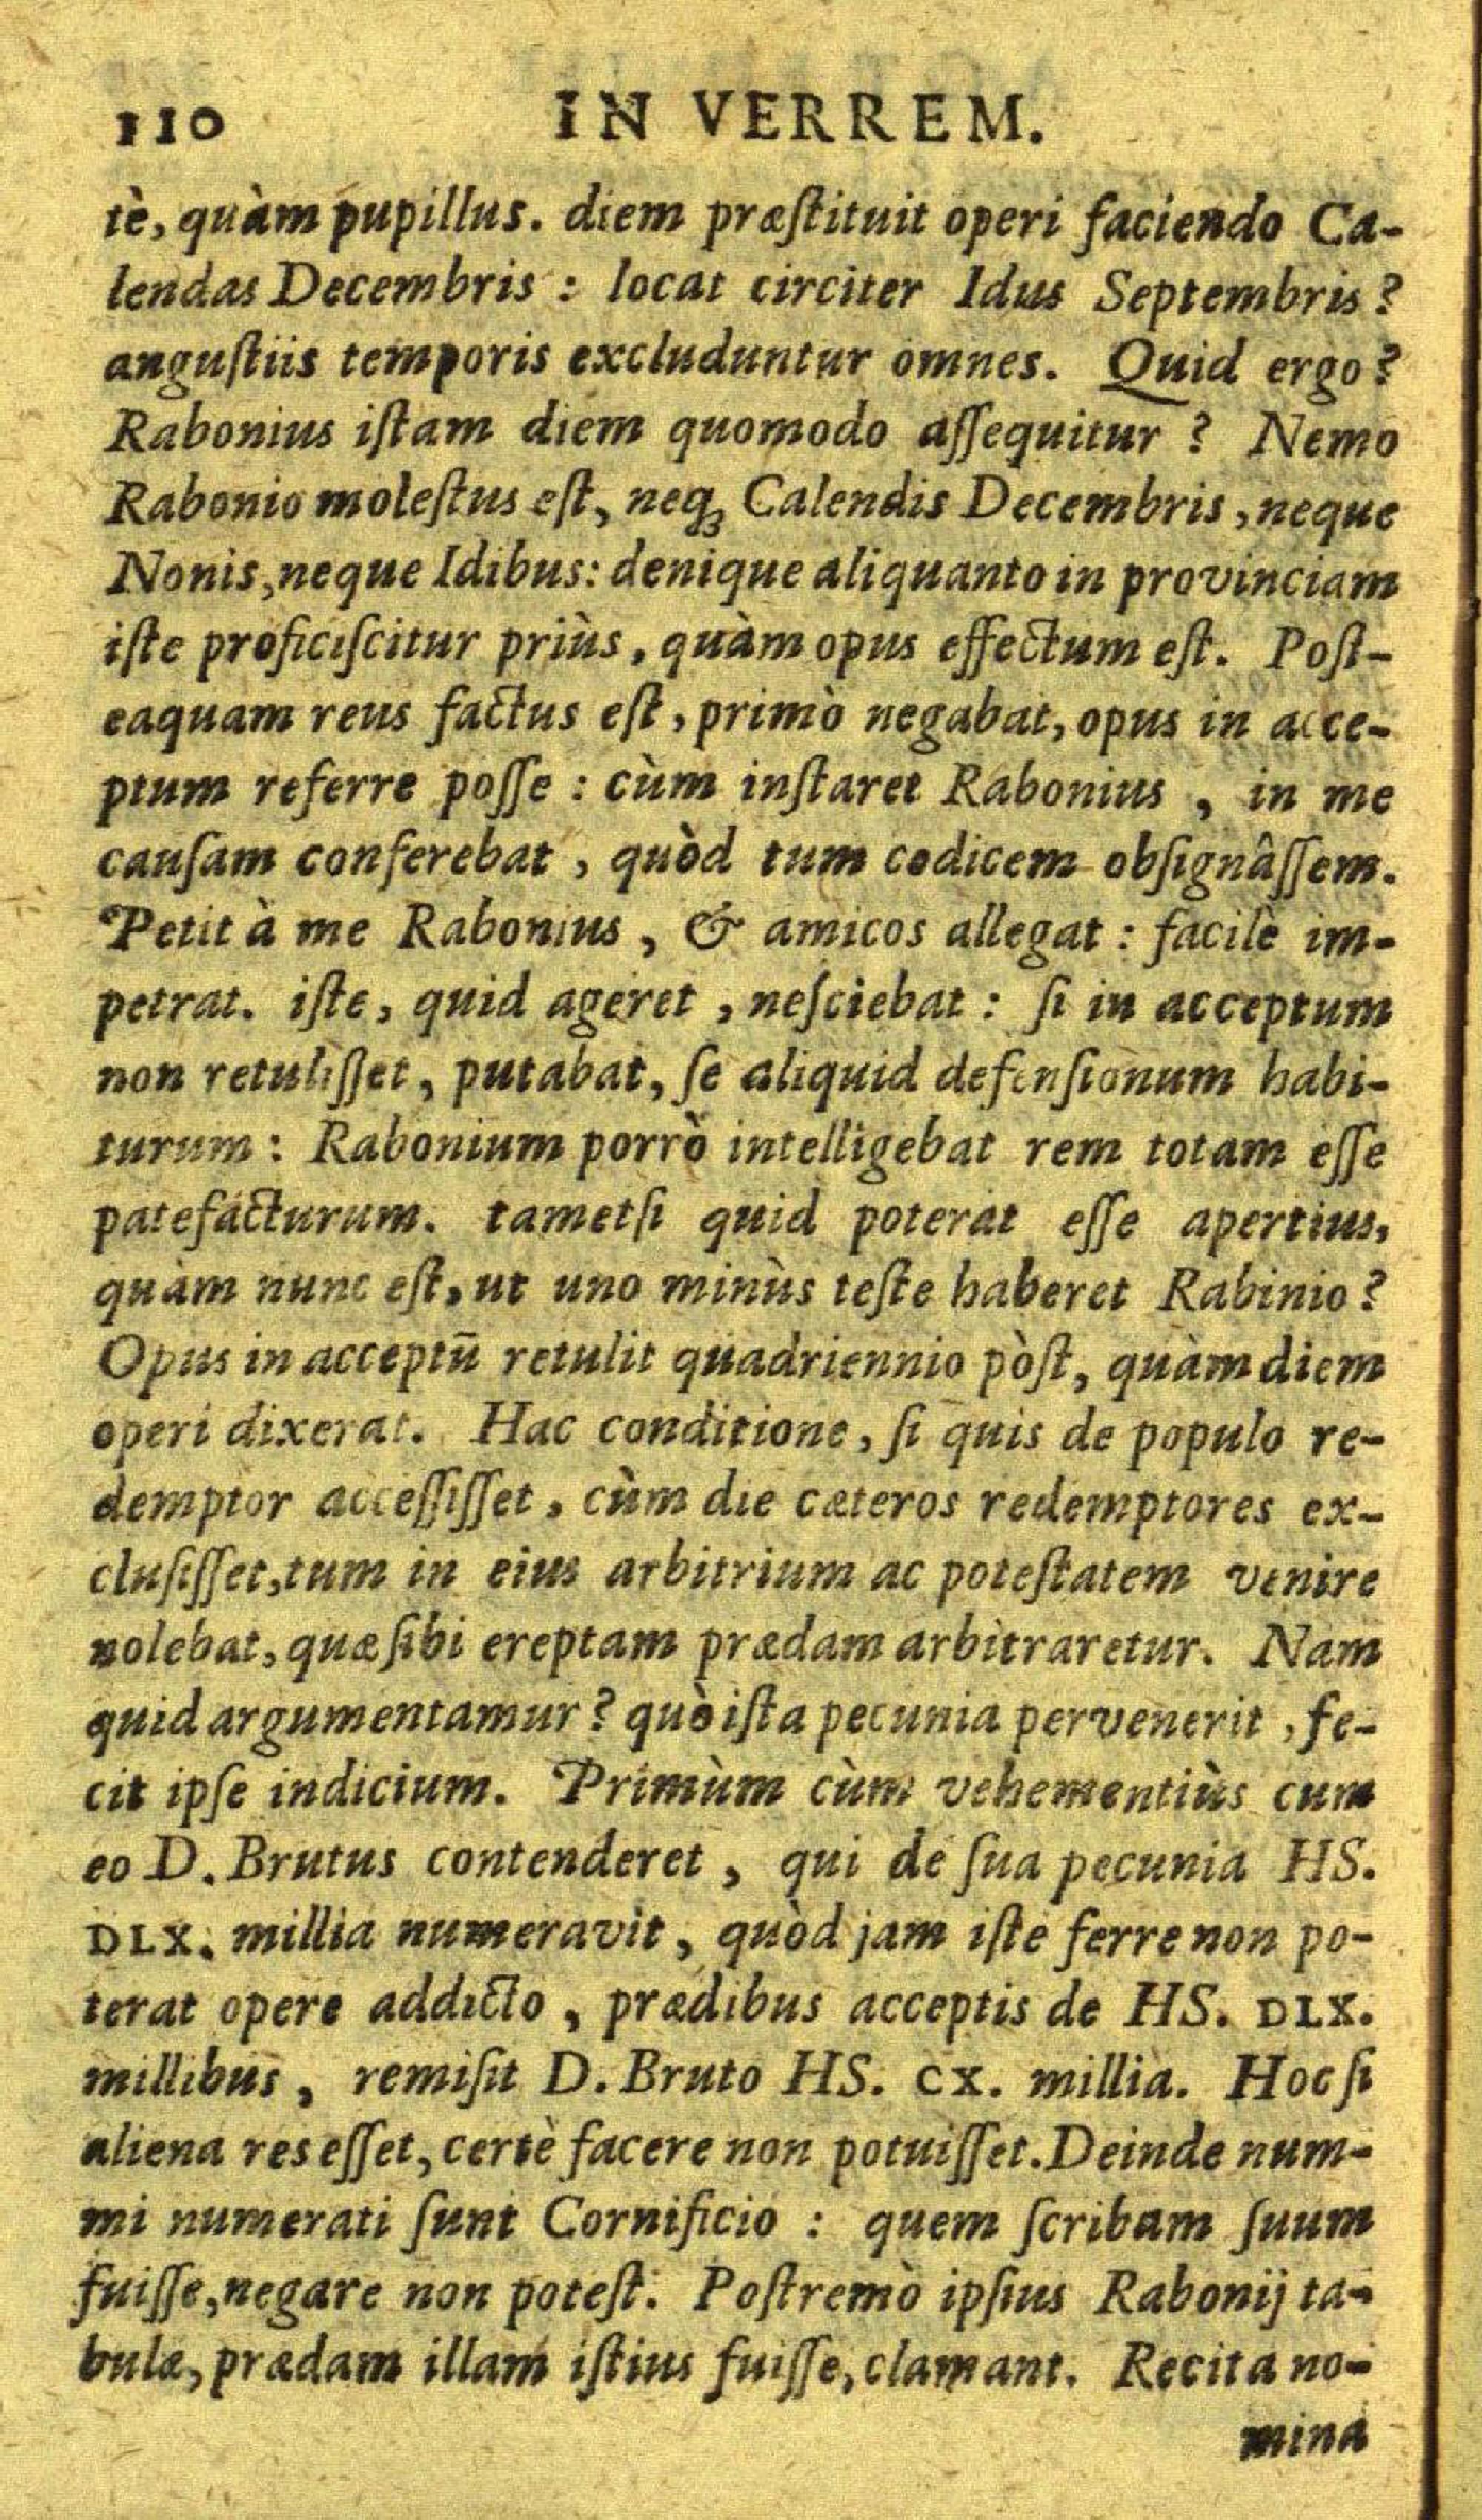 110 IN VERREM.
tè, quàm pupillus. diem præſtituit operi faciendo Ca-
lendas Decembris : locat circiter Idus Septembris?
anguſtiis temporis excluduntur omnes. Quid ergo?
Rabonius iſtam diem quomodo aſſequitur ? Nemo
Rabonio moleſtus eſt, neqꝫ Calendis Decembris, neque
Nonis, neque Idibus: denique aliquanto in provinciam
iſte proficiſcitur priùs, quàm opus effectum eſt. Poſt-
eaquam reus factus eſt, primò negabat, opus in acce-
ptum referre poſſe : cùm inſtaret Rabonius , in me
cauſam conferebat , quòd tum codicem obſignâſſem.
Petit à me Rabonius , & amicos allegat : facilè im-
petrat. iſte, quid ageret , neſciebat : ſi in acceptum
non retuliſſet, putabat, ſe aliquid defenſionum habi-
turum : Rabonium porrò intelligebat rem totam eſſe
patefacturum. tametſi quid poterat eſſe apertius,
quàm nunc eſt, ut uno minùs teſte haberet Rabinio?
Opus in acceptū retulit quadriennio pòſt, quàm diem
operi dixerat. Hac conditione, ſi quis de populo re-
demptor acceſſiſſet, cùm die cæteros redemptores ex-
cluſiſſet, tum in eius arbitrium ac poteſtatem venire
nolebat, quæ ſibi ereptam prædam arbitraretur. Nam
quid argumentamur? quò iſta pecunia pervenerit , fe-
cit ipſe indicium. Primùm cùm vehementiùs cum
eo D. Brutus contenderet , qui de ſua pecunia HS.
DLX. millia numeravit , quòd jam iſte ferre non po-
terat opere addicto , prædibus acceptis de HS. DLX.
millibus , remiſit D. Bruto HS. CX. millia. Hoc ſi
aliena res eſſet, certè facere non potuiſſet. Deinde num-
mi numerati ſunt Cornificio : quem ſcribam ſuum
fuiſſe, negare non poteſt. Poſtremò ipſius Rabonij ta-
bulæ, prædam illam iſtius fuiſſe, clamant. Recita no-
mina